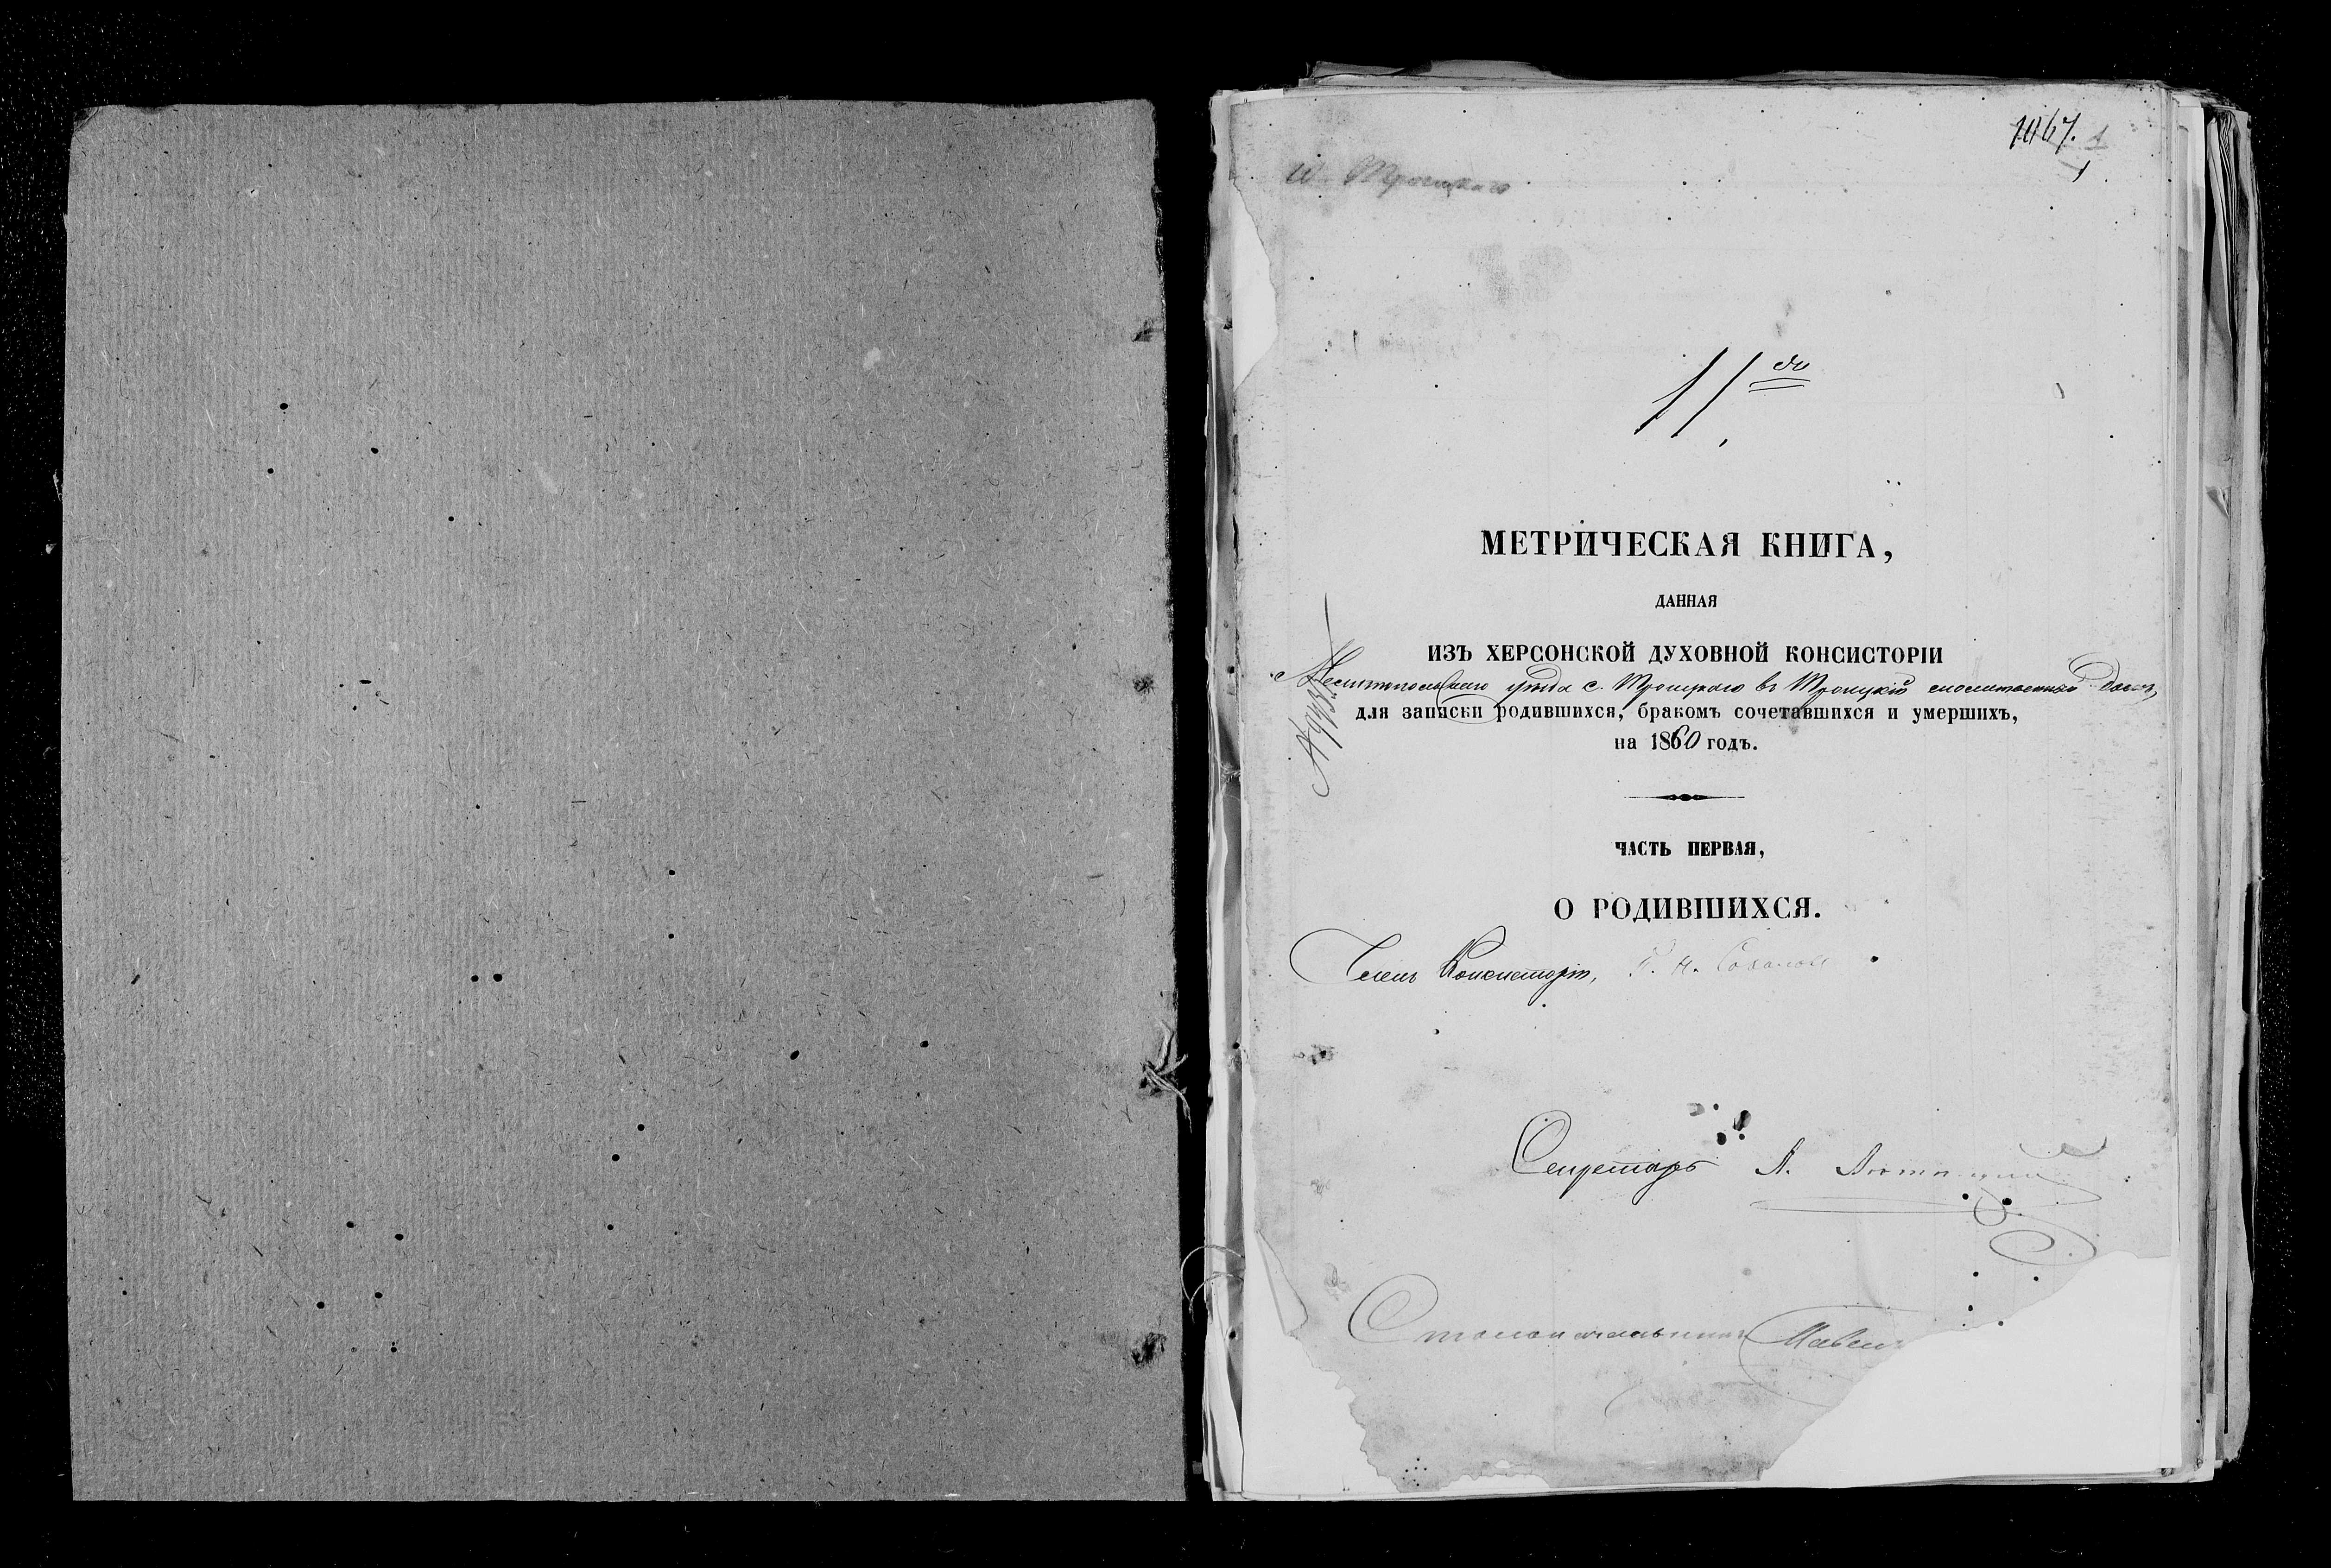 1067. 1
с. Троицкаго
МЕТРИЧЕСКАЯ КНИГА,
ДАННАЯ
ИЗЪ ХЕРСОНСКОЙ ДУХОВНОЙ КОНСИСТОРІИ
Мелитопольскаго уѣзда с. Троицкаго въ Троицкій молитвенный домъ,
для записки родившихся, бракомъ сочетавшихся и умершихъ,
на 1860 годъ.
ЧАСТЬ ПЕРВАЯ,
О РОДИВШИХСЯ.
Членъ Консисторіи,
Секретарь А.
Столоначальникъ